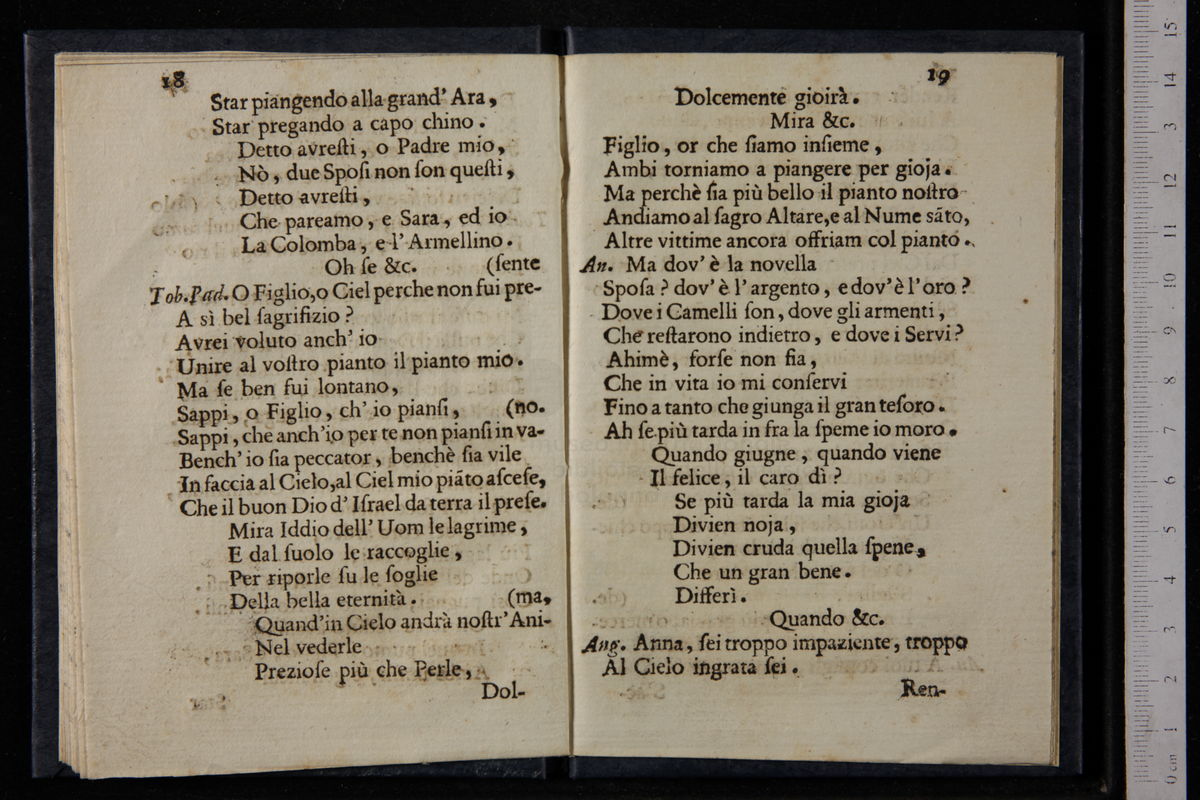 18
Star piangendo alla grand' Ara,
Star pregando a capo chino.
Detto avreſti, o Padre mio,
Nò, due Spoſi non ſon queſti,
Detto avreſti,
Che pareamo, e Sara, ed io
La Colomba, e l' Armellino.
Oh ſe &c. (ſente
Tob.Pad. O Figlio, o Ciel perche non fui pre-
A sì bel ſagrifizio?
Avrei voluto anch' io
Unire al voſtro pianto il pianto mio.
Ma ſe ben fui lontano,
Sappi, o Figlio, ch' io pianſi, (no.
Sappi, che anch'io per te non pianſi in va-
Bench' io ſia peccator, benchè ſia vile
In faccia al Cielo, al Ciel mio piãto aſceſe,
Che il buon Dio d' Iſrael da terra il preſe.
Mira Iddio dell' Uom le lagrime,
E dal ſuolo le raccoglie,
Per riporle ſu le ſoglie
Della bella eternità. (ma,
Quand'in Cielo andrà noſtr' Ani-
Nel vederle
Prezioſe più che Perle,
Dol-
19
Dolcemente gioirà.
Mira &c.
Figlio, or che ſiamo inſieme,
Ambi torniamo a piangere per gioja.
Ma perchè ſia più bello il pianto noſtro
Andiamo al ſagro Altare, e al Nume sãto,
Altre vittime ancora offriam col pianto.
An. Ma dov' è la novella
Spoſa? dov' è l' argento, e dov' è l' oro?
Dove i Camelli ſon, dove gli armenti,
Che reſtarono indietro, e dove i Servi?
Ahimè, forſe non fia,
Che in vita io mi conſervi
Fino a tanto che giunga il gran teſoro.
Ah ſe più tarda in fra la ſpeme io moro.
Quando giugne, quando viene
Il felice, il caro dì?
Se più tarda la mia gioja
Divien noja,
Divien cruda quella ſpene,
Che un gran bene.
Differì.
Quando &c.
Ang. Anna, ſei troppo impaziente, troppo
Al Cielo ingrata ſei.
Ren-
0 cm 1 2 3 4 5 6 7 8 9 10 11 12 3 14 15